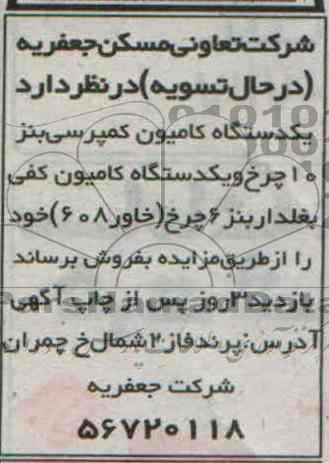 شرکت تعاونی مسکن جعفریه
(در حال تسویه) در نظر دارد
یکدستگاه کامیون کمپرسی بنز
۱۰ چرخ و یکدستگاه کامیون کفی
بغلدار بنز ۶ چرخ (خاور ۶۰۸) خود
را از طریق مزایده بفروش برساند
بازدید ۳ روز پس از چاپ آگهی
آدرس: پرند فاز ۲ شمال خ چمران
شرکت جعفریه
۵۶۷۲۰۱۱۸